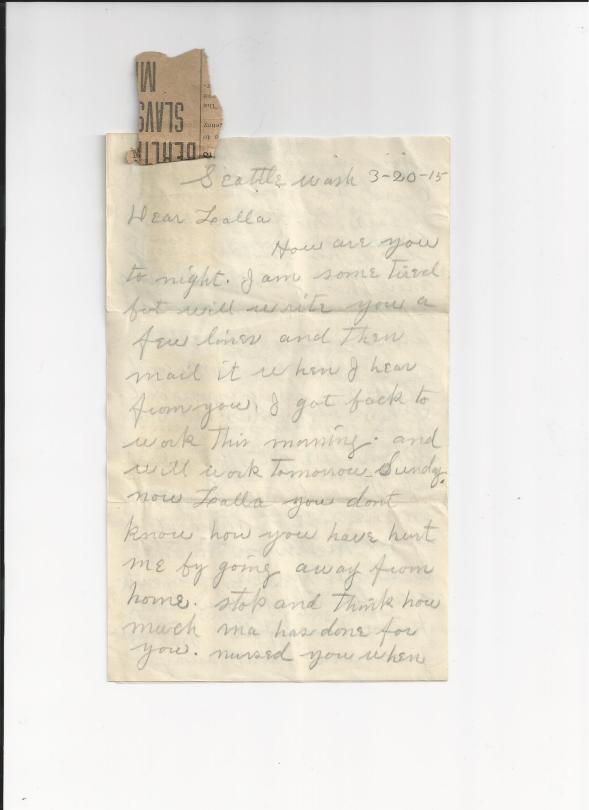 MI
SLAVS
BERLIN
The
Seattle wash 3-20-15
Dear Lalla
How are you
to night. I am some tired
but will write you a
few lines and then
mail it when I hear
from you. I got back to
work this morning. and
will work tomorrow Sundy.
now Lalla you dont
know how you have hurt
me by going away from
home. stop and think how
much ma has done for
you. nursed you when